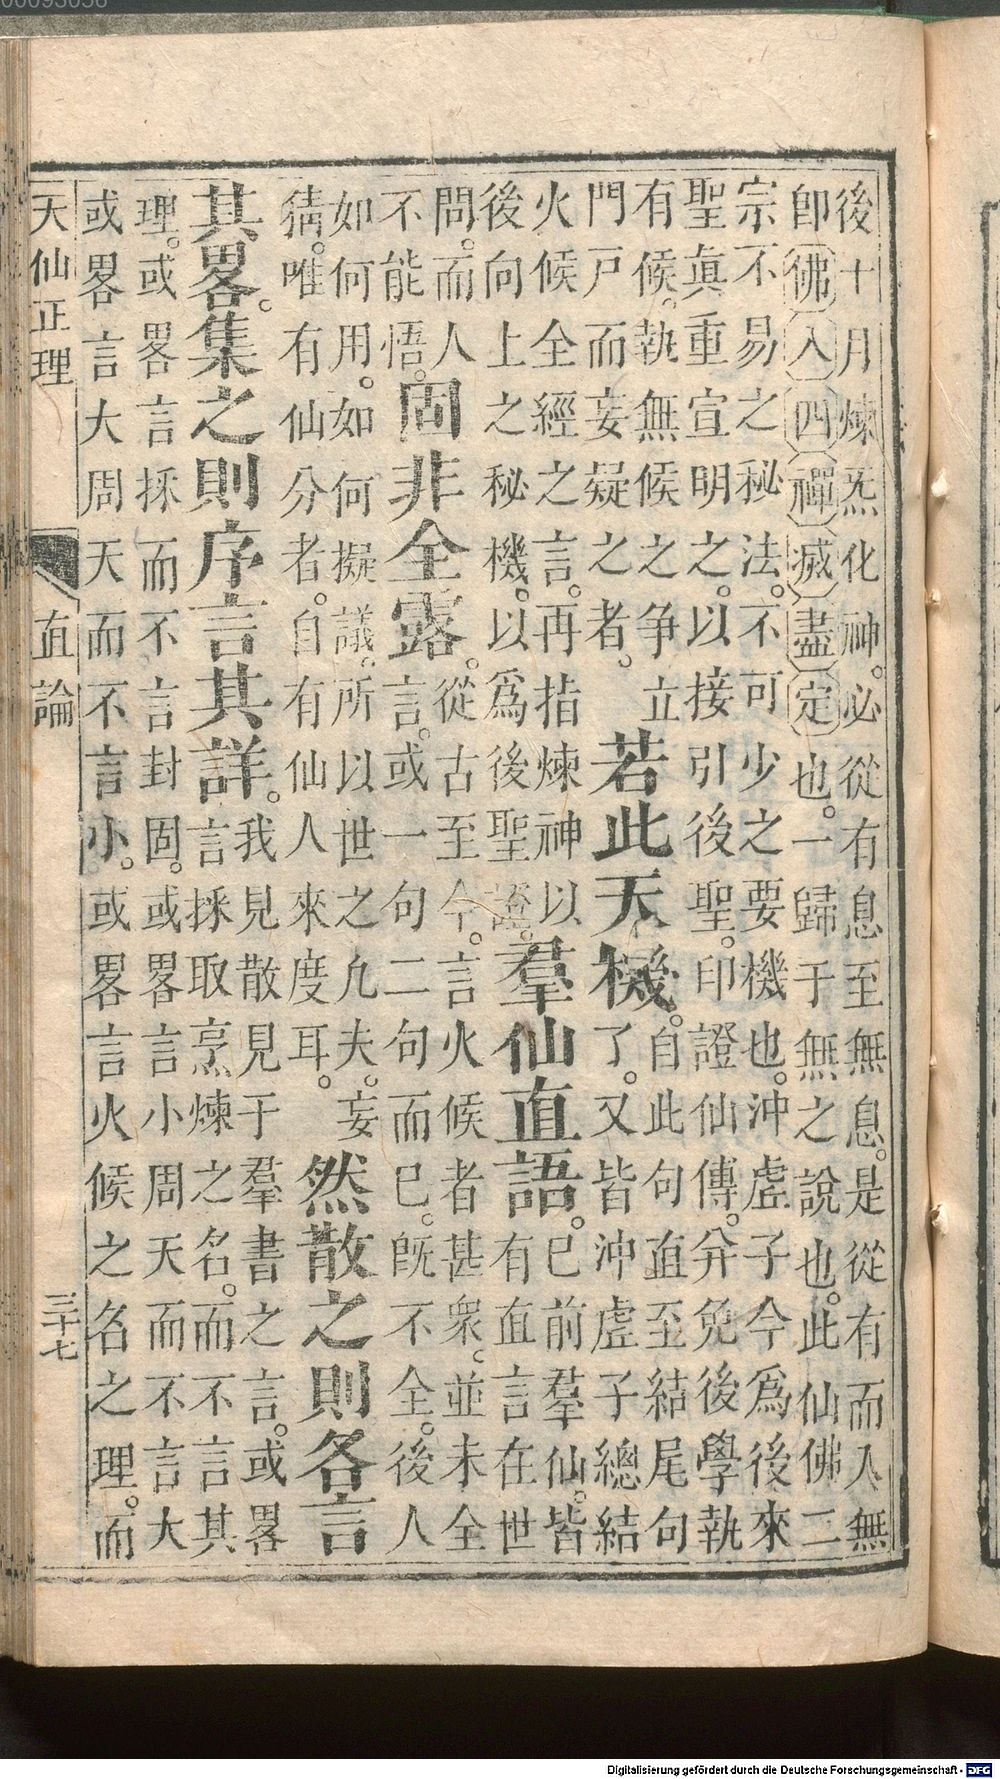 後十月煉炁化神。必從有息至無息。是從有而入無
卽佛入四禪滅盡定也。一歸于無之說也。此仙佛二
宗不易之秘法。不可少之要機也。沖虛子今爲後來
聖眞重宣明之。以接引後聖。印證仙傳。幷免後學執
有候。執無候之争立
門戶而妄疑之者。
若此天機。
自此句直至結尾句
了。又皆沖虛子總結
火候全經之言。再指煉神以
後向上之秘機。以爲後聖證。
羣仙直語。
已前羣仙。皆
有直言在世
問。而人
不能悟。
固非全露。
從古至今。言火候者甚衆。並未全
言。或一句二句而已。旣不全。後人
如何用。如何擬議。所以世之凢夫。妄
猜。唯有仙分者。自有仙人來度耳。
然散之則各言
其畧。集之則序言其詳。
我見散見于羣書之言。或畧
言採取烹煉之名。而不言其
理。或畧言採而不言封固。或畧言小周天而不言大
或畧言大周天而不言小。或畧言火候之名之理。而
天仙正理
直論
三十七
00093056
Digitalisierung gefördert durch die Deutsche Forschungsgemeinschaft - DFG